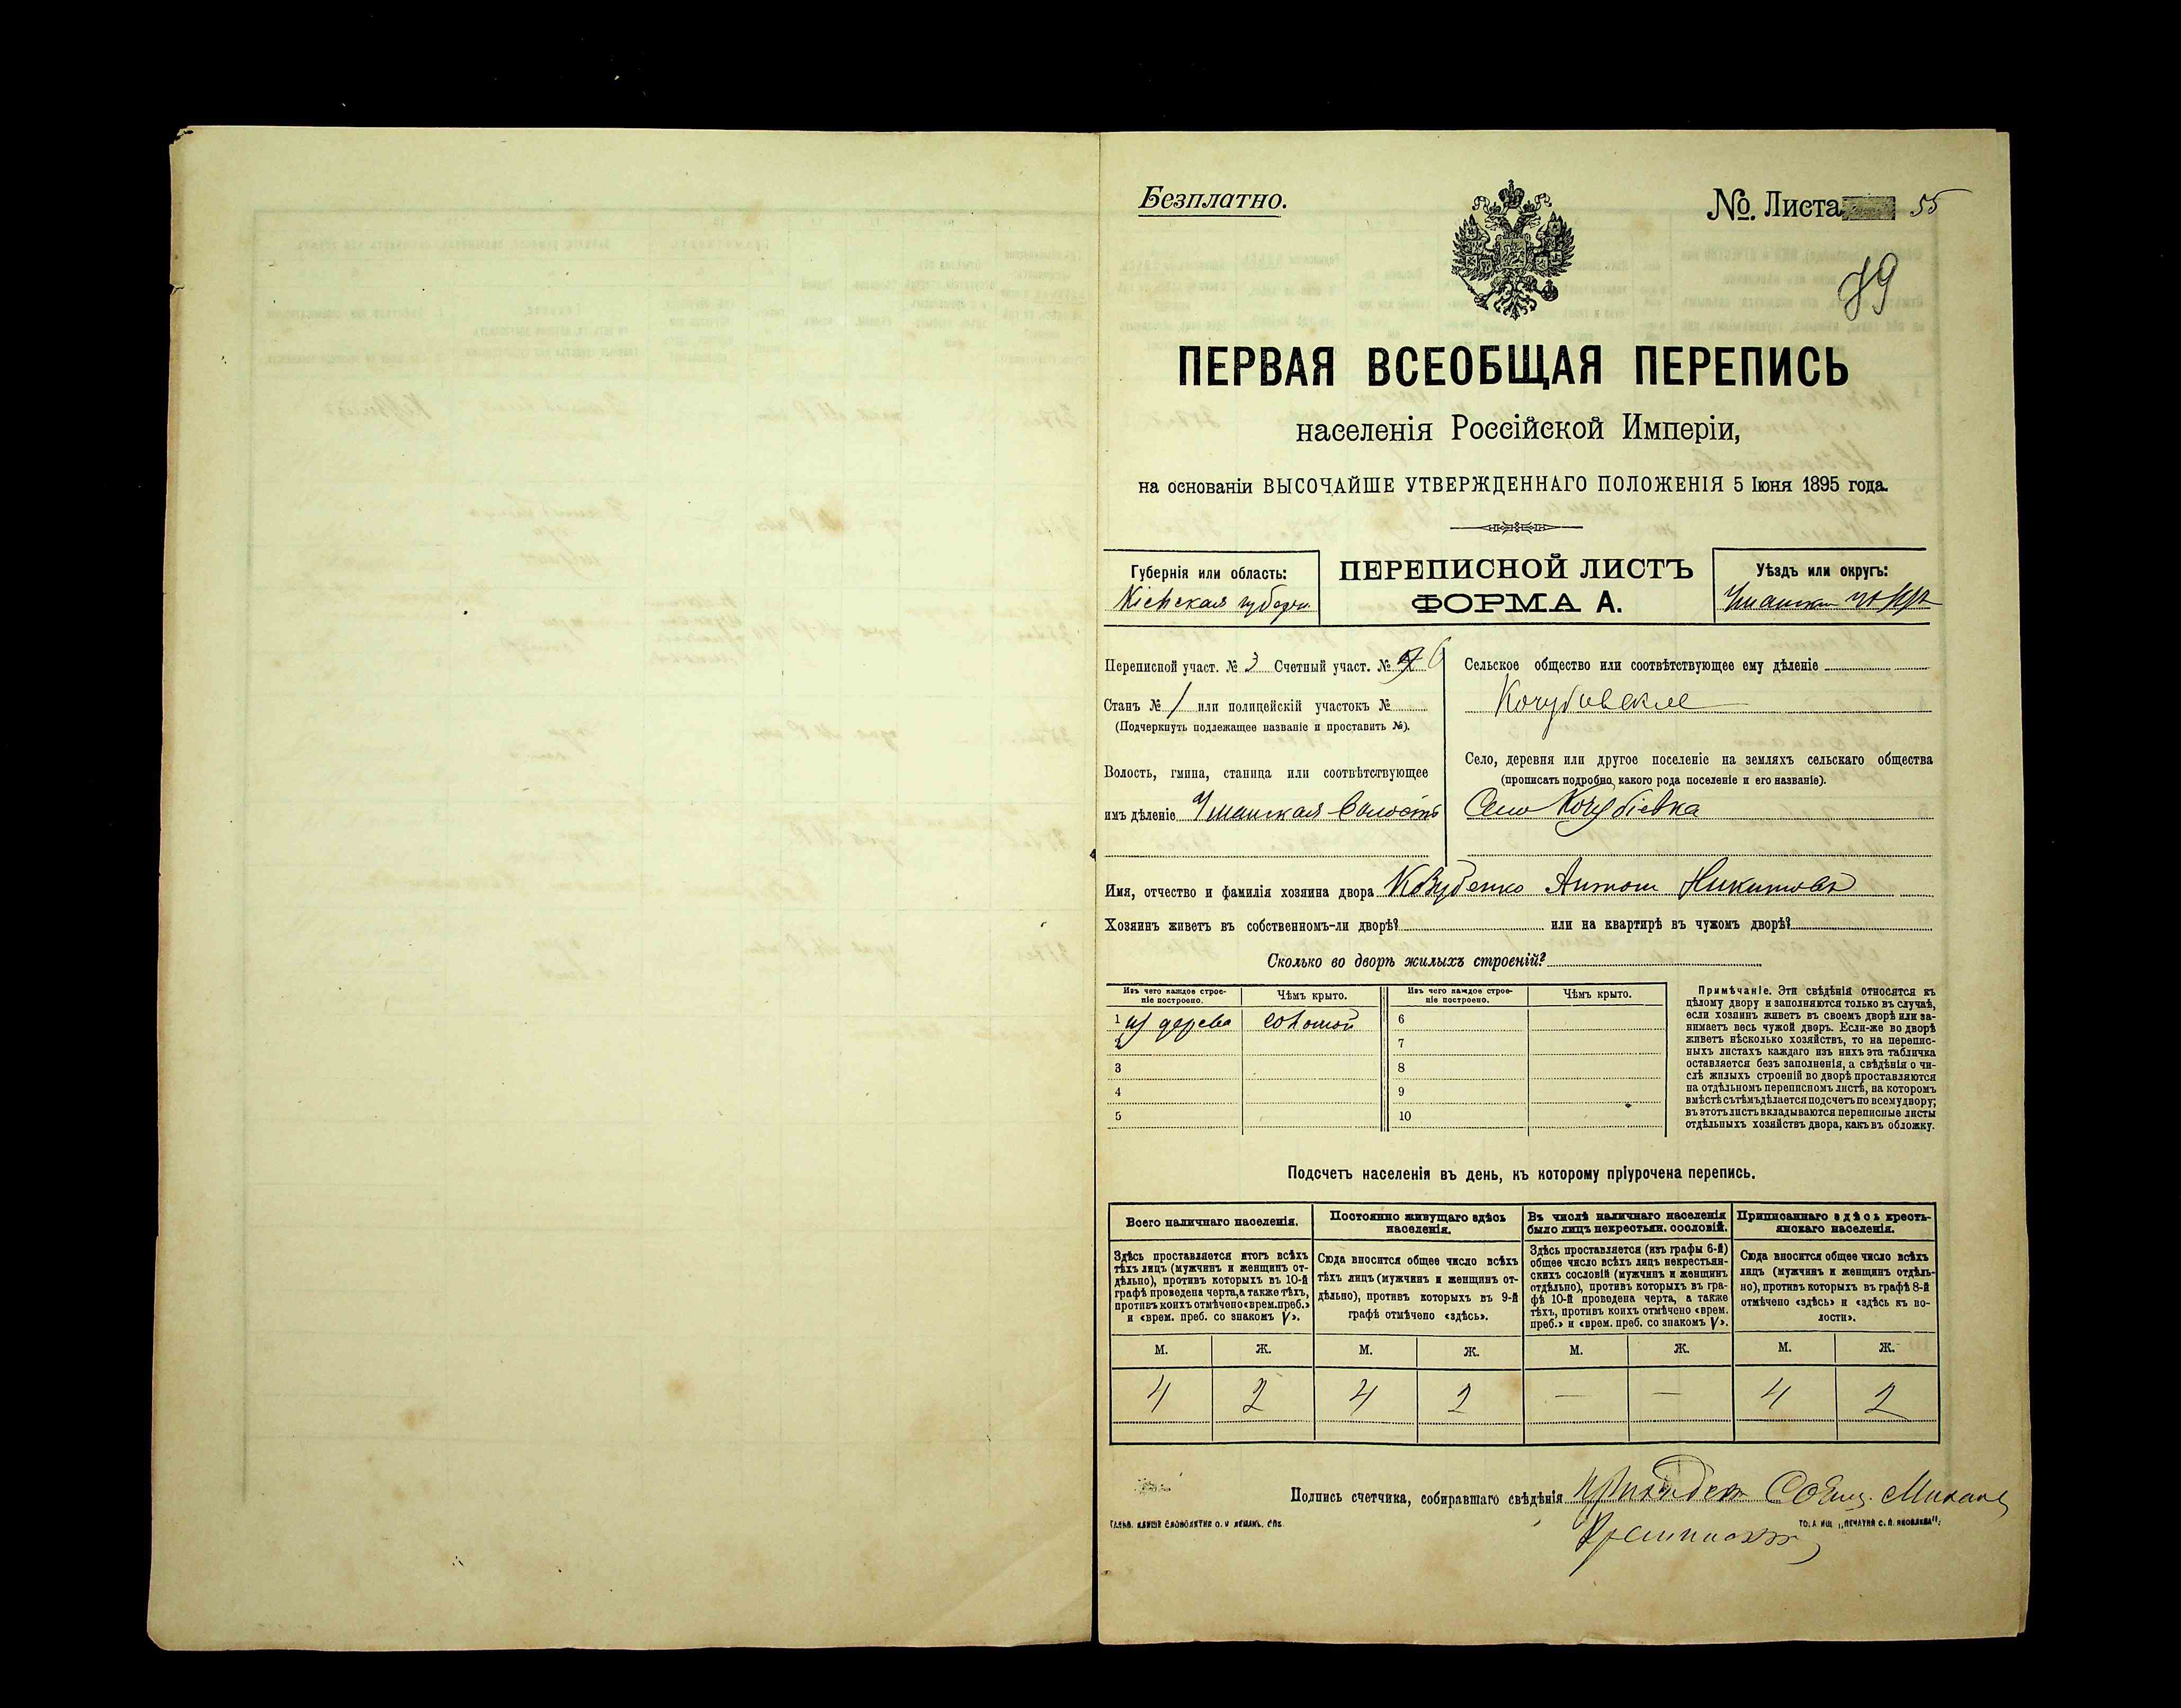 Безплатно.
№. Листа 55
79
ПЕРВАЯ ВСЕОБЩАЯ ПЕРЕПИСЬ
населенія Россійской Имперіи,
на основаніи ВЫСОЧАЙШЕ УТВЕРЖДЕННАГО ПОЛОЖЕНІЯ 5 Іюня 1895 года.
Губернія или область:
Кіевская губерн.
ПЕРЕПИСНОЙ ЛИСТЪ
ФОРМА А.
Уѣздъ или округъ:
Переписной участ. № 3 Счетный участ. № 6
Станъ № 1 или полицейскій участокъ №
(Подчеркнуть подлежащее названіе и проставить №).
Волость, гмина, станица или соотвѣтствующее
имъ дѣленіе Уманская Волость
Сельское общество или соотвѣтствующее ему дѣленіе
Село, деревня или другое поселеніе на земляхъ сельскаго общества
(прописать подробно, какого рода поселеніе и его названіе).
Село Кочубіевка
Имя, отчество и фамилія хозяина двора Антон Никитовъ
Хозяинъ живетъ въ собственномъ-ли дворѣ? или на квартирѣ въ чужомъ дворѣ?
Сколько во дворѣ жилыхъ строеній?
Изъ чего каждое строе-
ніе построено.
Чѣмъ крыто.
Изъ чего каждое строе-
ніе построено.
Чѣмъ крыто.
1 из дерева соломой 6
2 7
3 8
4 9
5 10
Примѣчаніе. Эти свѣдѣнія относятся къ
цѣлому двору и заполняются только въ случаѣ,
если хозяинъ живетъ въ своемъ дворѣ или за-
нимаетъ весь чужой дворъ. Если-же во дворѣ
живетъ нѣсколько хозяйствъ, то на перепис-
ныхъ листахъ каждаго изъ нихъ эта табличка
оставляется безъ заполненія, а свѣдѣнія о чи-
слѣ жилыхъ строеній во дворѣ проставляются
на отдѣльномъ переписномъ листѣ, на которомъ
вмѣстѣ съ тѣмъ дѣлается подсчетъ по всему двору;
въ этотъ листъ вкладываются переписные листы
отдѣльныхъ хозяйствъ двора, какъ въ обложку.
Подсчетъ населенія въ день, къ которому пріурочена перепись.
Всего наличнаго населенія.
Постоянно живущаго здѣсь
населенія.
Въ числѣ наличнаго населенія
было лицъ некрестьян. сословій.
Приписаннаго здѣсь кресть-
янскаго населенія.
Здѣсь проставляется итогъ всѣхъ
тѣхъ лицъ (мужчинъ и женщинъ от-
дѣльно), противъ которыхъ въ 10-й
графѣ проведена черта, а также тѣхъ,
противъ коихъ отмѣчено «врем. преб.»
и «врем. преб. со знакомъ V».
Сюда вносится общее число всѣхъ
тѣхъ лицъ (мужчинъ и женщинъ от-
дѣльно), противъ которыхъ въ 9-й
графѣ отмѣчено «здѣсь».
Здѣсь проставляется (изъ графы 6-й)
общее число всѣхъ лицъ некрестьян-
скихъ сословій (мужчинъ и женщинъ
отдѣльно), противъ которыхъ въ гра-
фѣ 10-й проведена черта, а также
тѣхъ, противъ коихъ отмѣчено «врем.
преб.» и «врем. преб. со знакомъ V».
Сюда вносится общее число всѣхъ
лицъ (мужчинъ и женщинъ отдѣль-
но), противъ которыхъ въ графѣ 8-й
отмѣчено «здѣсь» и «здѣсь къ во-
лости».
М. Ж. М. Ж. М. Ж. М. Ж.
4 2 4 2 — — 4 2
Подпись счетчика, собиравшаго свѣдѣнія